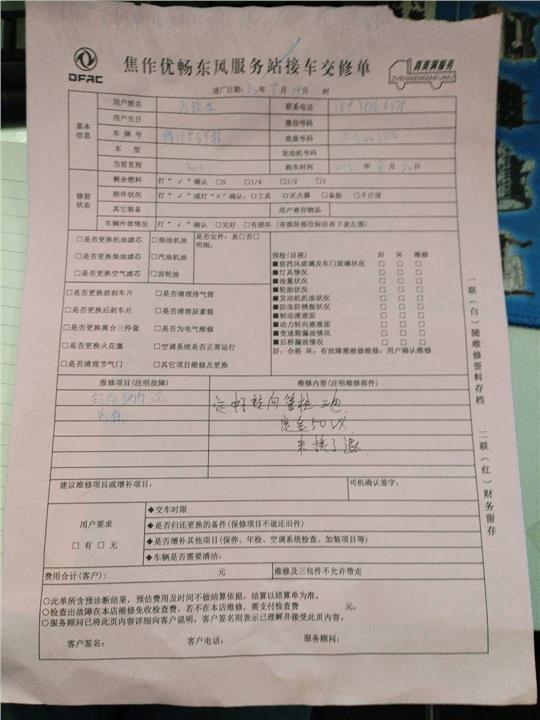 DFAC
焦作优畅东风服务站接车交修单
真英满服务
进厂日期： 年 月 时
基本信息
用户姓名 联系电话
用户生日 微信号码
车牌号 底盘号码
车型 发动机号码
当前里程 购车时间 年 月 日
修前状态
剩余燃油 打"√"确认 □0 □1/4 □1/2 □1
附件状况 打"√"或打"×"确认：□工具 □灭火器 □备胎 □千斤顶
其它装备 用户寄存物品
车辆外部情况 打"√"确认 □完好 □有损坏（有损坏部位标注在下表左图）
□是否更换机油滤芯 □柴油机油
□是否更换柴油滤芯 □汽油机油
□是否更换空气滤芯 □齿轮油
是否定件，是□否□
明细：
□是否更换前刹车片 □是否清理排气筒
□是否更换后刹车片 □是否清理尿素箱
□是否更换离合三件套 □是否为电气维修
□是否更换火花塞 □空调系统是否正常运行
□是否清理节气门 □其它项目维修及更换
预检（目视） 好 坏 维修
■前挡风玻璃及车门玻璃状况 □ □ □
■灯具情况 □ □ □
■油量状况 □ □ □
■轮胎状况 □ □ □
■发动机机油状况 □ □ □
■防冻防锈瓶状况 □ □ □
■制动液液面 □ □ □
■动力转向液液面 □ □ □
■变速箱漏油情况 □ □ □
■后桥漏油情况 □ □ □
好：合格 坏：有故障需维修维修：用户确认维修
报修项目（注明故障） 维修内容（注明维修部件）
定 转向管柱 三包
定金50
来换了退
建议维修项目或增补项目： 司机确认签字：
用户要求
□有 □无
◆交车时限
◆是否归还更换的备件（保修项目不退还旧件）
◆是否增补其他项目（保养、年检、空调系统检查、加装项目等）
◆车辆是否需要清洁：
费用合计（客户）： 元 维修及三包件不允许带走
○此单所含预诊断结果，预估费用及时间不做结算依据，结算以结算单为准。
○检查出故障在本店维修免收检查费，若不在本店维修，需支付检查费 元。
○服务顾问已将此页内容详细向客户说明，客户签名则表示已理解并接受此页内容。
客户签名： 客户电话： 服务顾问：
一联（白）随维修资料存档
二联（红）财务留存